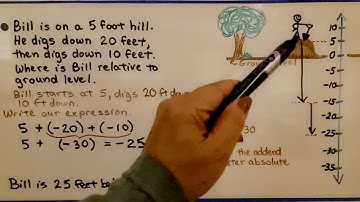 Bill is on a 5 foot hill.
He digs down 20 feet,
then digs down 10 feet.
Where is Bill relative to
ground level.
Bill starts at 5, digs 20 ft
10 ft down.
Write our expression.
5 + (-20) + (-10)
5 + (-30) = -25
Bill is 25 feet
30
the addend
absolute
5
0
-5
-10
-15
-20
-25
-30
-35